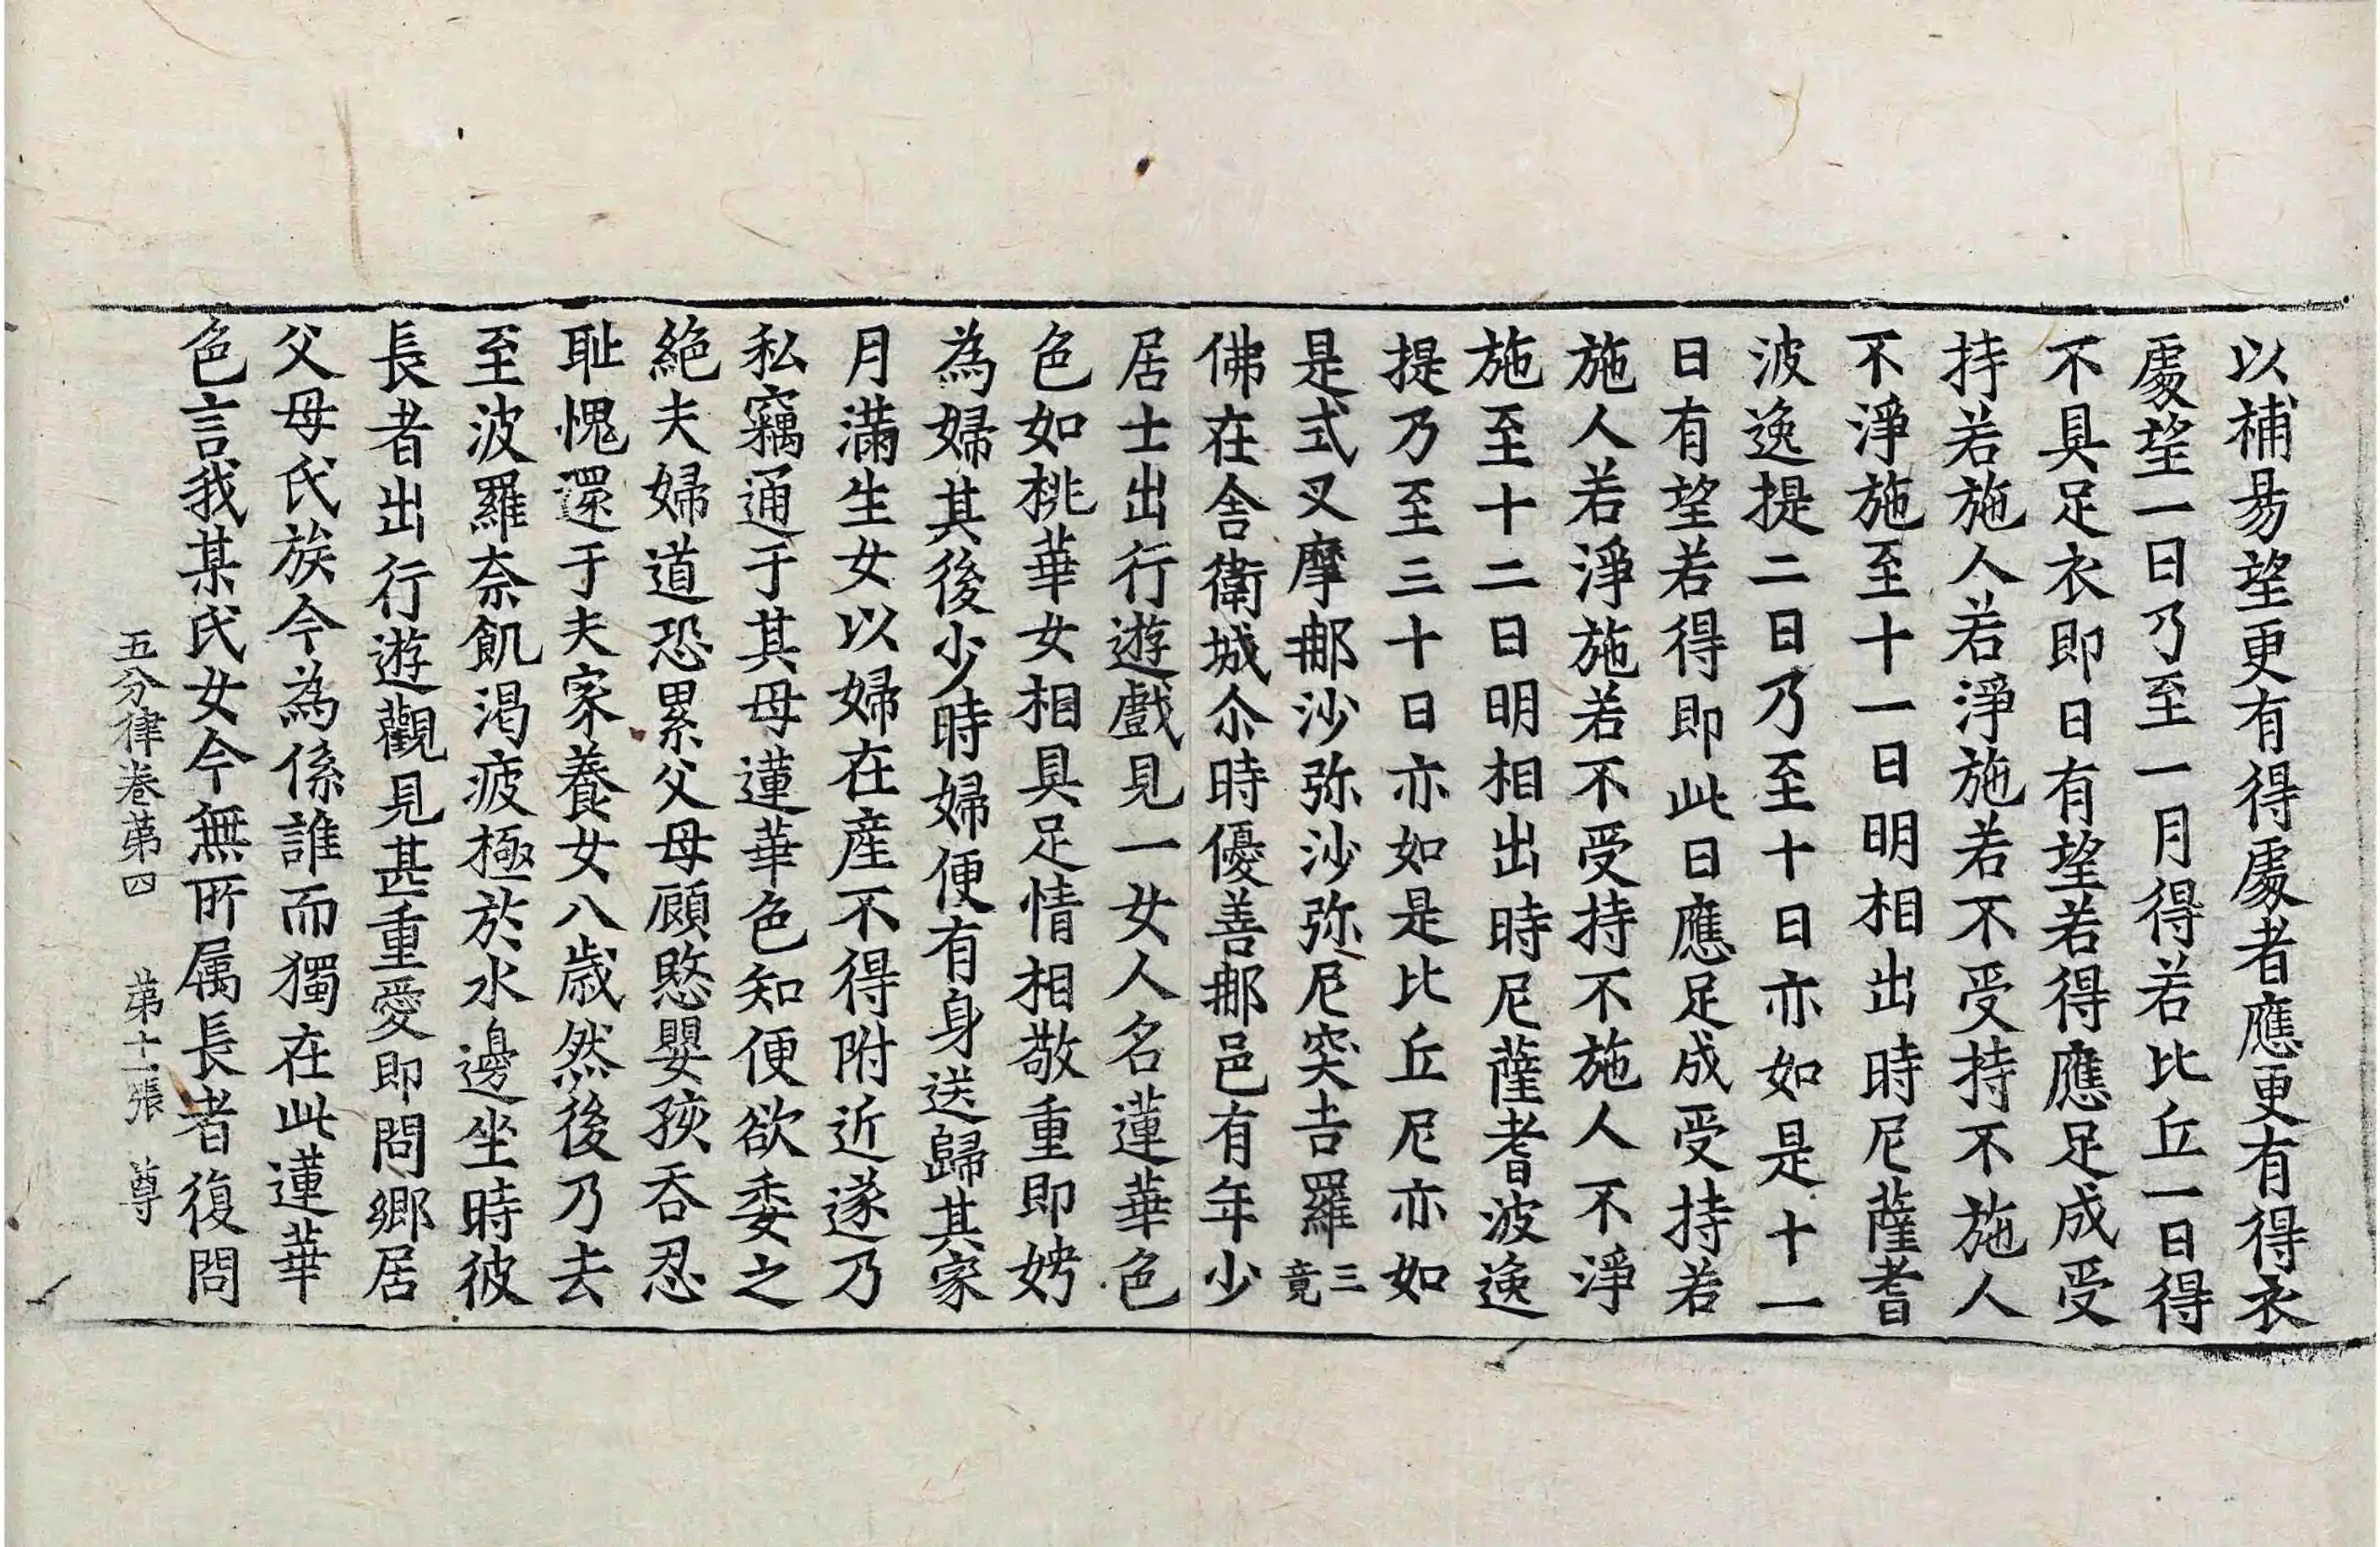 以補易望更有得處者應更有得衣
處望一日乃至一月得若比丘一日得
不具足衣即日有望若得應足成受
持若施人若淨施若不受持不施人
不淨施至十一日明相出時尼薩耆
波逸提二日乃至十日亦如是十一
日有望若得即此日應足成受持若
施人若淨施若不受持不施人不淨
施至十二日明相出時尼薩耆波逸
提乃至三十日亦如是比丘尼亦如
是式叉摩那沙弥沙弥尼突吉羅三竟
佛在舍衛城尒時優善那邑有年少
居士出行遊戲見一女人名蓮華色
色如桃華女相具足情相敬重即娉
為婦其後少時婦便有身送歸其家
月滿生女以婦在產不得附近遂乃
私竊通于其母蓮華色知便欲委之
絕夫婦道恐累父母顧愍嬰孩吞忍
耻愧還于夫家養女八歲然後乃去
至波羅奈飢渴疲極於水邊坐時彼
長者出行遊觀見甚重愛即問鄉居
父母氏族今為係誰而獨在此蓮華
色言我某氏女今無所属長者復問
五分律卷第四 第十一張 尊